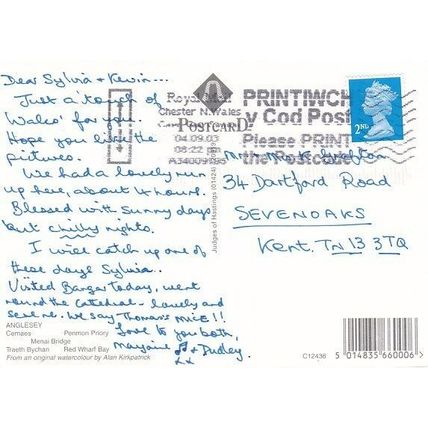 Dear Sylvia + Kevin...
Just a 'touch of
Wales' for you.
Hope you like the
pictures.
We had a lovely run
up here, about 4 hours.
Blessed with sunny days
but chilly nights.
I will catch up one of
these days Sylvia..
Visited Bangor today, went
round the Cathedral - lovely and
serene. We say Thomas's MICE!!
Love to you both,
Marjorie + Dudley.
xx
ANGLESEY
Cemaes Penmon Priory
Menai Bridge
Traeth Bychan Red Wharf Bay
From an original watercolour by Alan Kirkpatrick
Royal Mail
Chester N.Wales
POSTCARD
04.09.03
08:22 pm
A34009195
PRINTIWCH
y Cod Post
Please PRINT
the Postcode
2ND
Judges of Hastings (01424)
34 Dartford Road
SEVENOAKS
Kent. TN13 3TQ
C12438
5 014835 660006